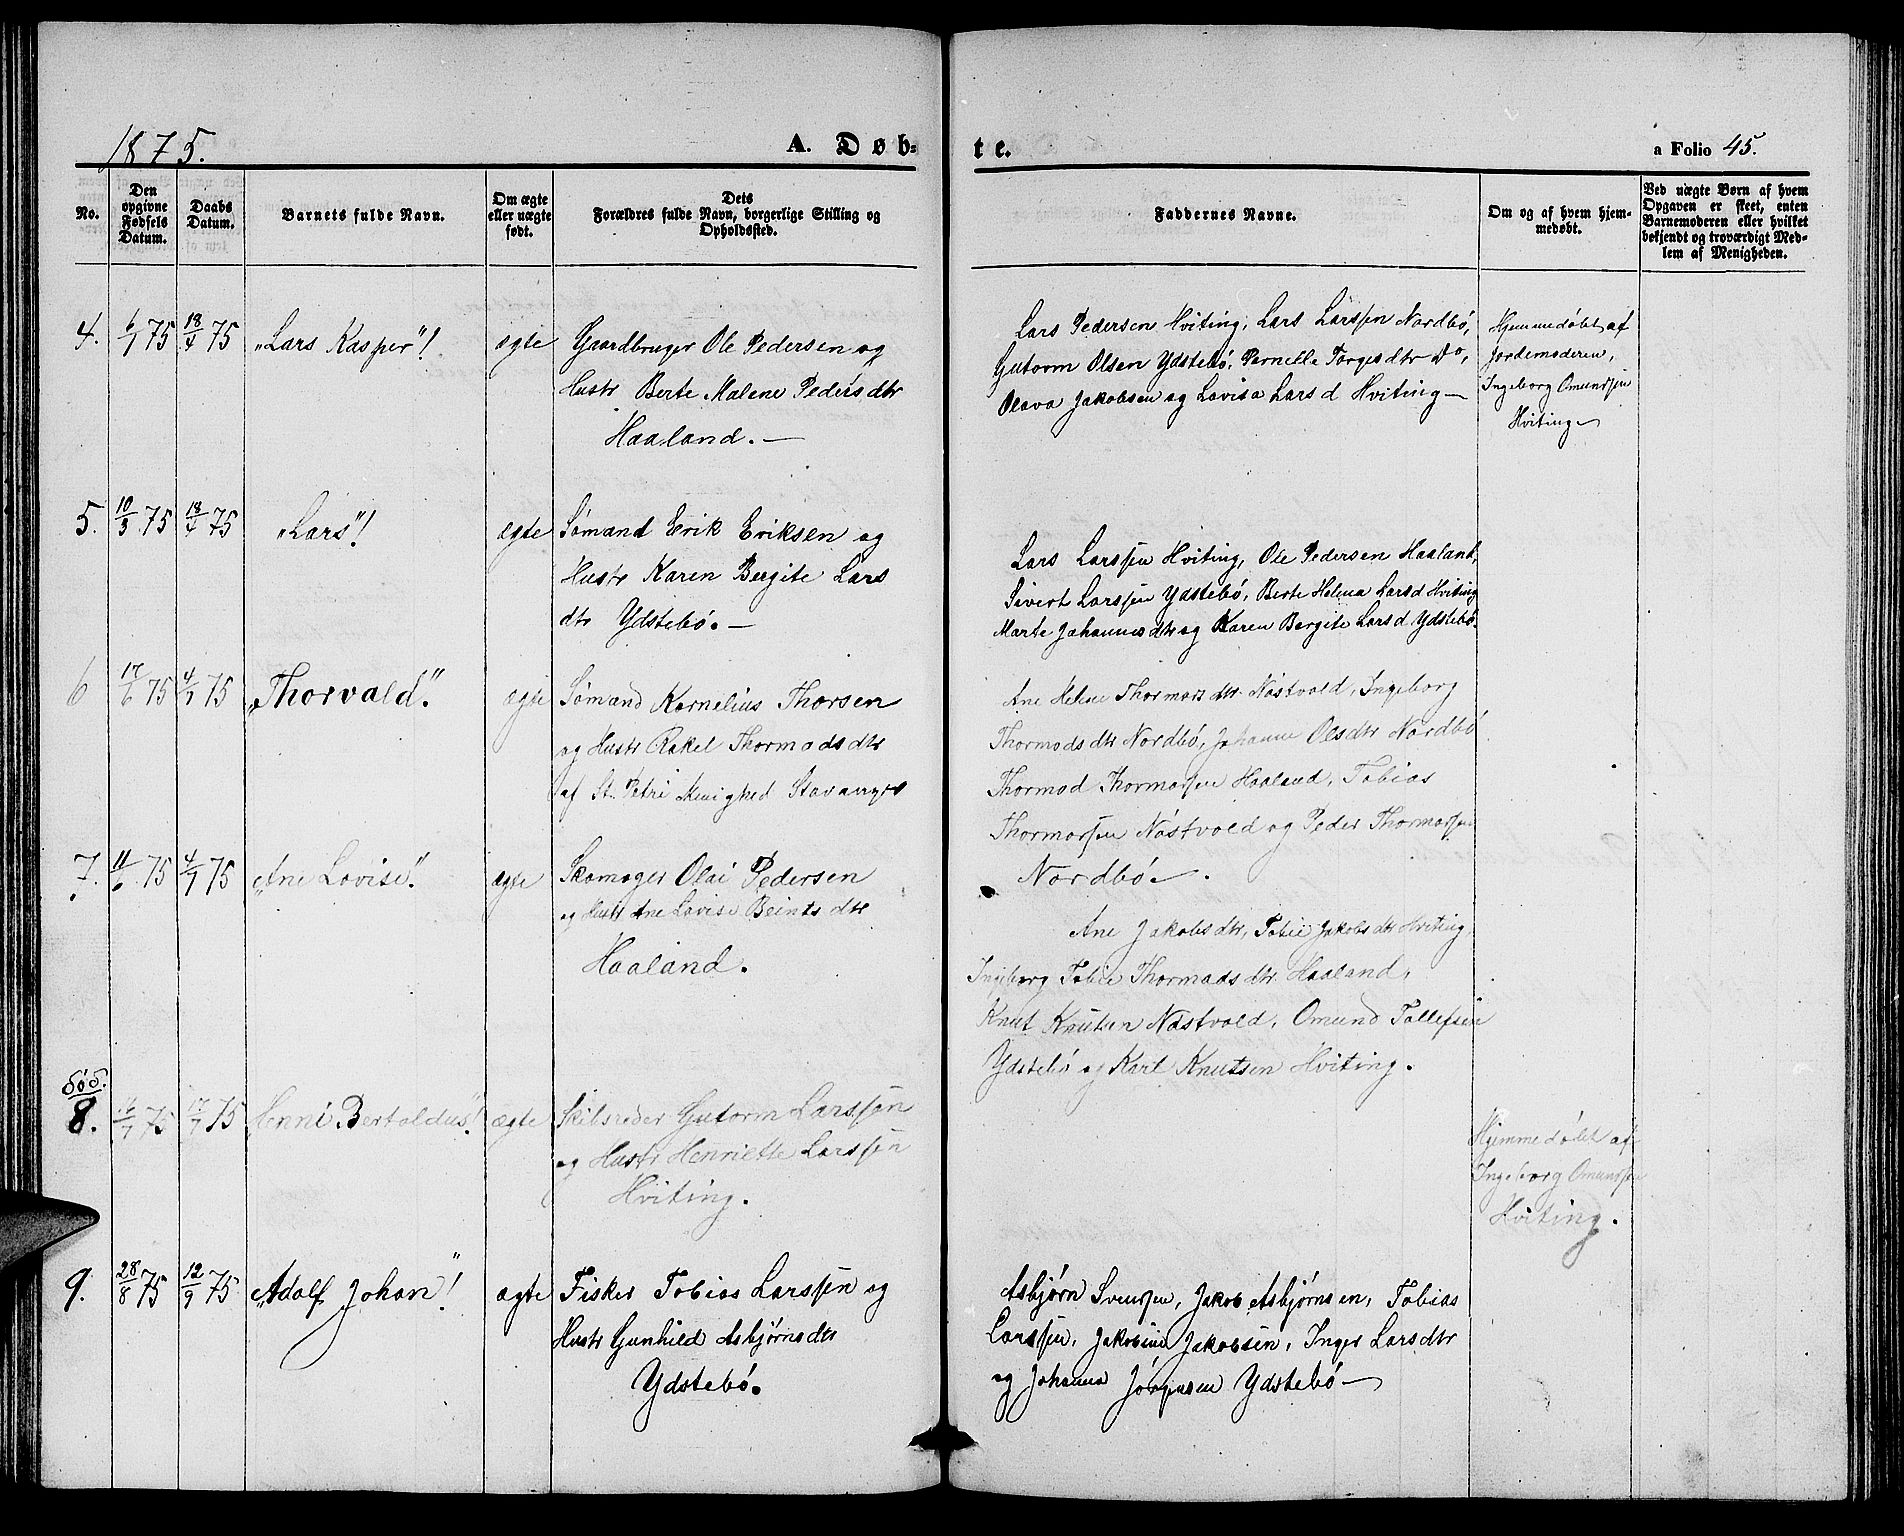 1875.
A. Døb-
te.
a Folio 45.
No.
Den
opgivne
Fødsels
Datum.
Daabs
Datum.
Barnets fulde Navn.
Om ægte
eller uægte
født.
Dets
Forældres fulde Navn, borgerlige Stilling og
Opholdssted.
Faddernes Navne.
Om og af hvem hjem-
medøbt.
Ved uægte Børn af hvem
Opgaven er skeet, enten
Barnemoderen eller hvilket
bekjendt og troværdigt Med-
lem af Menigheden.
4. 6/1 75 18/4 75 "Lars Kasper"! ægte
Gaardbruger Ole Pedersen og
Hustr Berte Malene Pedersdtr
Haaland. —
Lars Pedersen Hviting, Lars Larssen Nordbö,
Gutorm Olsen Ydstebö, Pernelle Torgesdtr Do,
Olava Jakobsen og Lovisa Lars d Hviting —
Hjemmedöbt af
Jordemoderen,
Ingeborg Omundsen
Hviting —
5. 10/3 75 18/4 75 "Lars"! ægte
Sömand Erik Eriksen og
Hustr Karen Bergite Lars
dtr Ydstebö. —
Lars Larssen Hviting, Ole Pedersen Haaland,
Sivert Larssen Ydstebö, Berte Helena Larsd Hviting
Marte Johannesdtr og Karen Bergite Larsd Ydstebö.
6 17/6 75 4/7 75 "Thorvald". ægte
Sömand Kornelius Thorsen
og Hustr Rakel Thormodsdtr
af St. Petri Menighed Stavanger
Ane Helene Thormodsdtr Nåstvold, Ingeborg
Thormodsdtr Nordbö, Johanne Olsdtr Nordbö
Thormod Thormorsen Haaland, Tobias
Thormorsen Nåstvold og Peder Thormorsen
Nordbö —.
7. 11/6 75 4/7 75 "Ane Lovise". ægte
Skomager Olai Pedersen
og Hustr Ane Lovise Beintsdtr
Haaland.
Ane Jakobsdtr, Tobie Jakobsdtr Hviting
Ingeborg Tobie Thormodsdtr Haaland,
Knut Knutsen Nåstvold, Omund Tollefsen
Ydstebö og Karl Knutsen Hviting.
död.
8. 17/7 75 "Henni Bertoldus"! ægte
Skibsreder Gutorm Larssen
og Hustr Henriette Larssen
Hviting.
Hjemmedöbt af
Ingeborg Omundsen
Hviting.
9. 28/8 75 12/9 75 "Adolf Johan"! ægte
Fisker Tobias Larssen og
Hustr Gunhild Asbjörnsdtr
Ydstebö.
Asbjörn Svensen, Jakob Asbjörnsen, Tobias
Larssen, Jakobine Jakobsen, Inger Larsdtr
og Johanna Jörgensen Ydstebö —